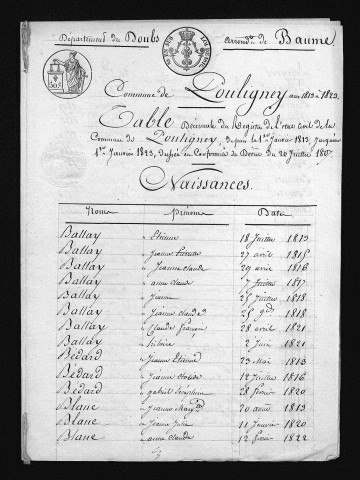 Département du Doubs
Arrond.t de Baume
Commune de Pouligney ans 1813 à 1823
Table Décennale du Registre de l'état civil de la
Commune de Pouligney, depuis le 1er Janvier 1813, jusqu'au
1er Janvier 1823, dressée en Conformité du Décret du 20 Juillet 1807.
Naissances.
Noms Prénoms Date
Ballay Etienne 18 Juillet 1813
Ballay Jeanne 27 avril 1815
Ballay Jeanne Claude 29 avril 1816
Ballay anne Claude 7 Juillet 1817
Ballay Jeanne 25 Juillet 1818
Ballay Jeanne Claude 25 9bre 1818
Ballay Claude François 28 avril 1821
Ballay Victoire 2 Juin 1821
Bédard Jeanne Etienne 23 Mai 1813
Bédard Jeanne 12 Juillet 1816
Bédard gabriel Séraphin 28 février 1820
Blanc Jeanne Marg.te 20 août 1813
Blanc Jeanne Julie 11 Janvier 1820
Blanc anne Claude 12 février 1822